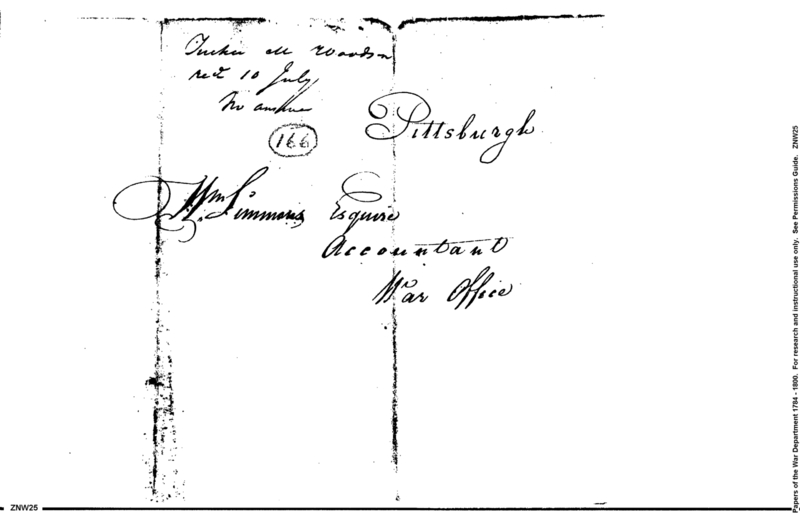 Tucker M Woodson
recd 10 July
No answer
166
Pittsburgh
Wm Simmons Esquire
Accountant
War Office
ZNW25
Papers of the War Department 1784 - 1800. For research and instructional use only. See Permissions Guide. ZNW25